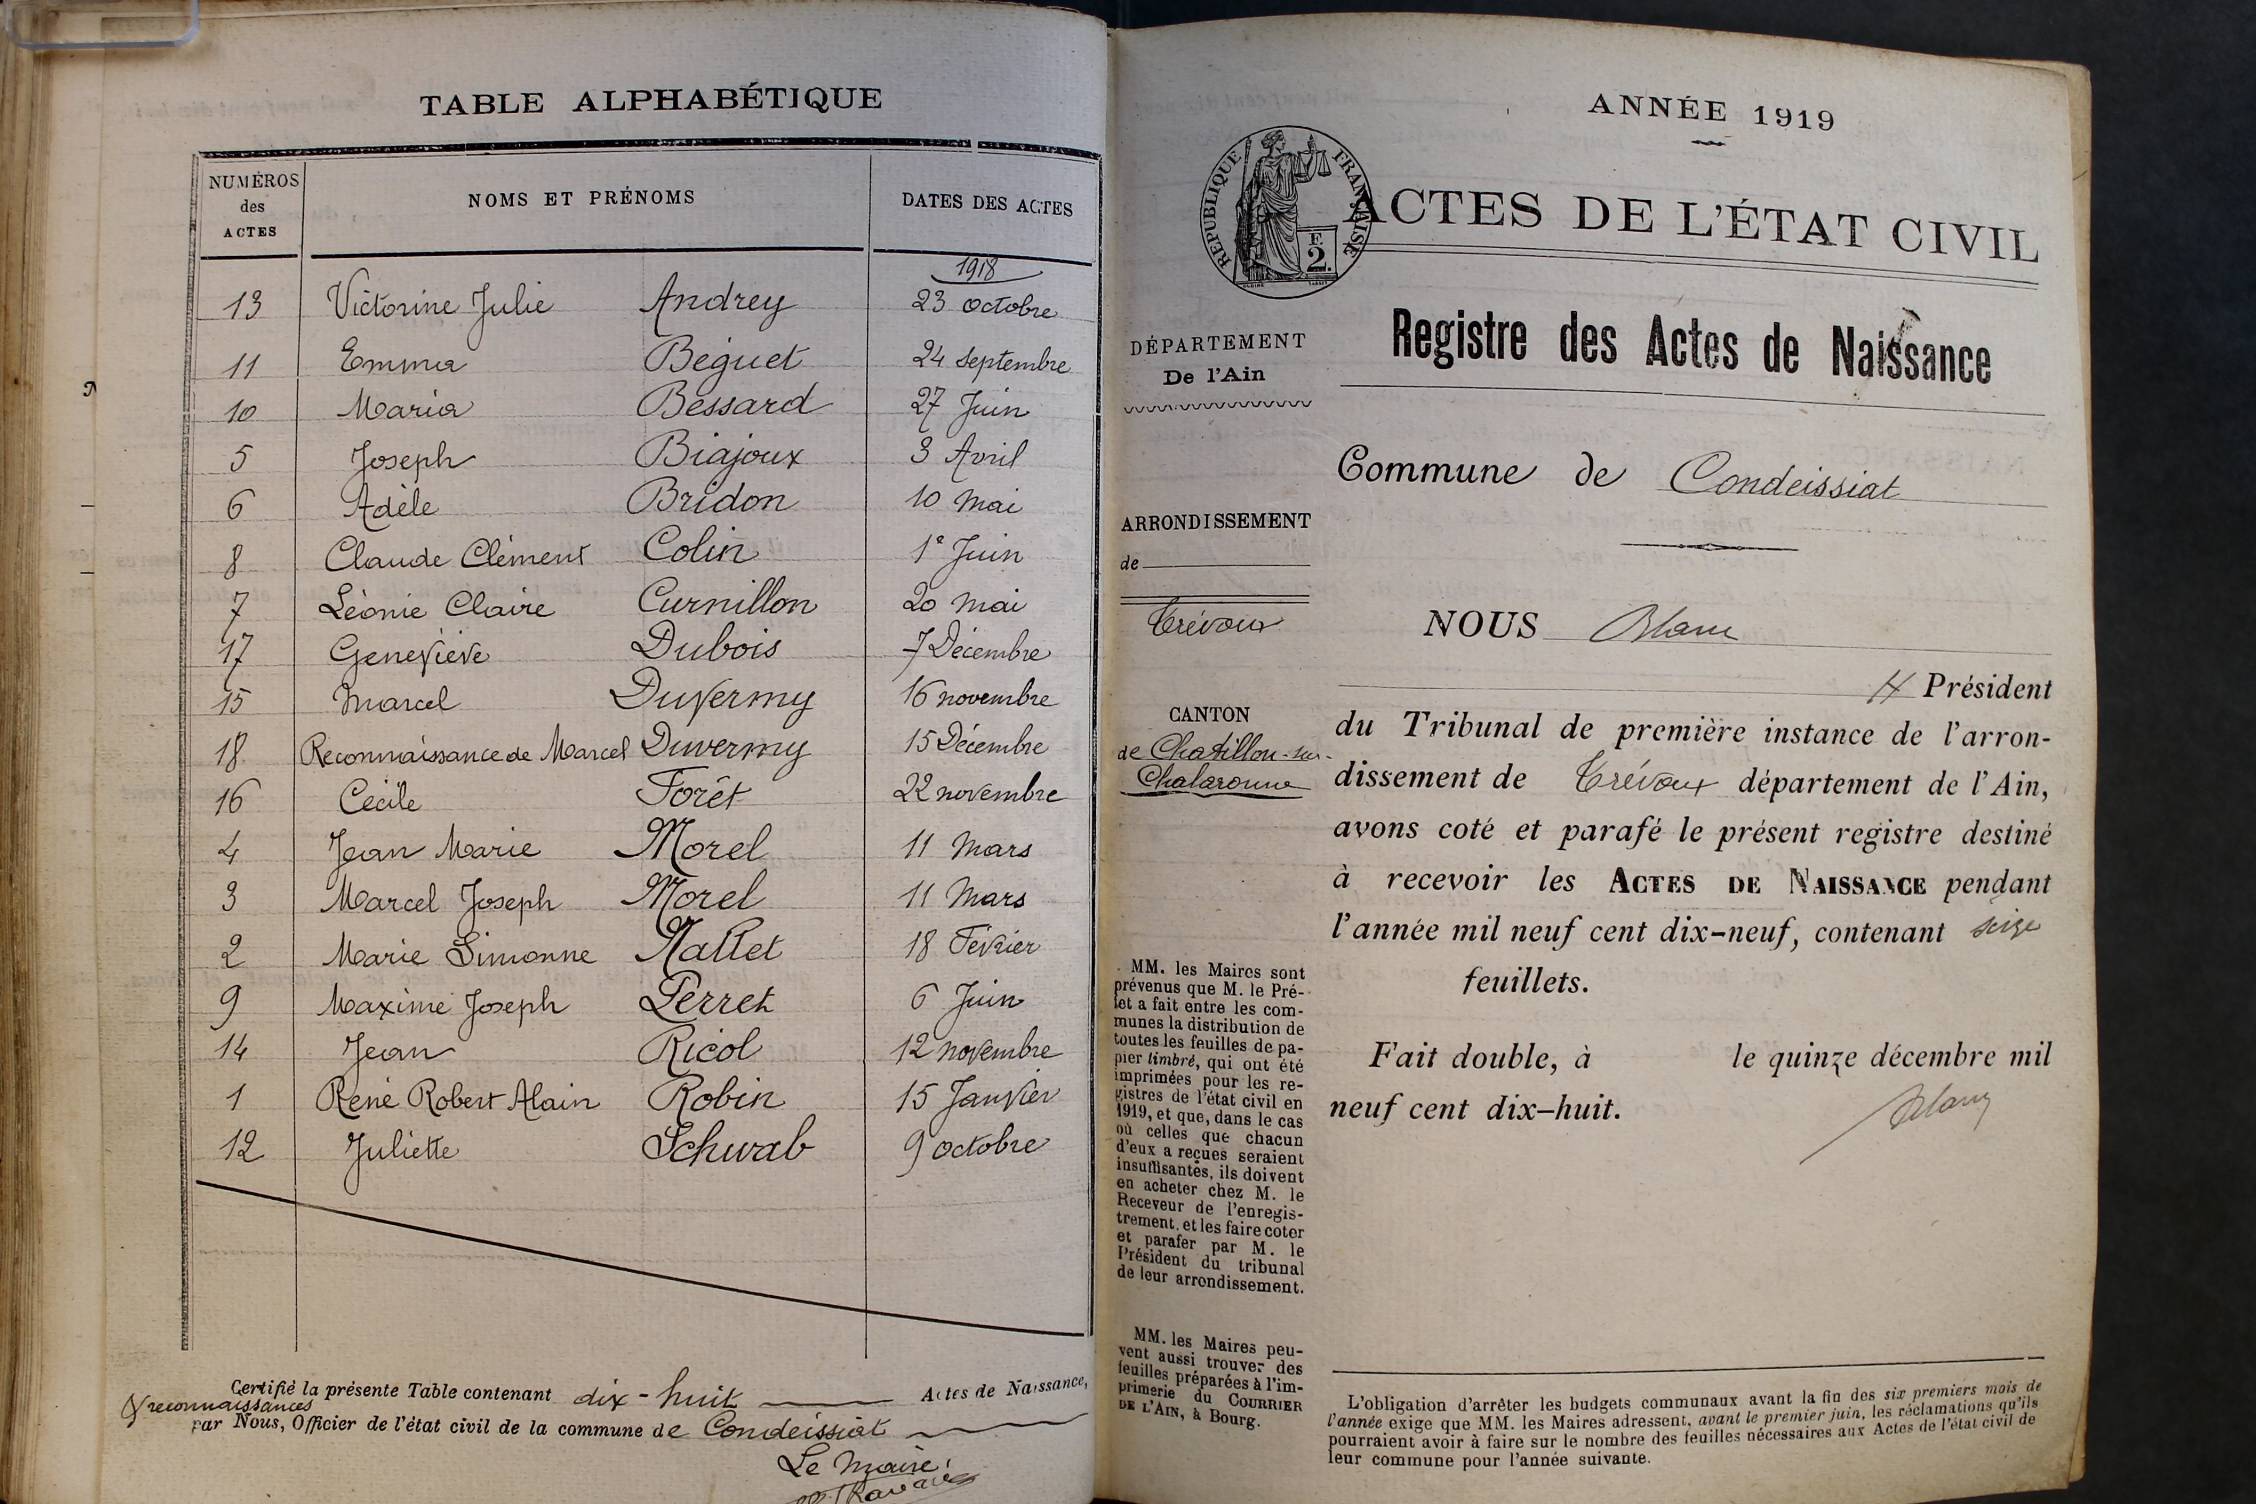 TABLE ALPHABÉTIQUE
NUMÉROS des ACTES NOMS ET PRÉNOMS DATES DES ACTES
1918
13 Victorine Julie Andrey 23 octobre
11 Emma Béguet 24 septembre
10 Maria Bessard 27 Juin
5 Joseph Biajoux 3 Avril
6 Adèle Bridon 10 mai
8 Claude Clément Colin 1e Juin
7 Léonie Claire Curnillon 20 mai
17 Geneviève Dubois 7 Décembre
15 Marcel Duvermy 16 novembre
18 Reconnaissance de Marcel Duvermy 15 Décembre
16 Cécile Forêt 22 novembre
4 Jean Marie Morel 11 mars
3 Marcel Joseph Morel 11 Mars
2 Marie Simonne Nallet 18 Février
9 Maxime Joseph Perret 6 Juin
14 Jean Ricol 12 novembre
1 René Robert Alain Robin 15 Janvier
12 Juliette Schwab 9 octobre
Certifié la présente Table contenant dix-huit Actes de Naissance,
reconnaissances
par Nous, Officier de l'état civil de la commune de Condeissiat
Le Maire,
ANNÉE 1919
RÉPUBLIQUE FRANÇAISE
F.
2.
ACTES DE L'ÉTAT CIVIL
Registre des Actes de Naissance
DÉPARTEMENT
De l'Ain
Commune de Condeissiat
ARRONDISSEMENT
de
Trévoux
CANTON
de Chatillon-sur-
Chalaronne
MM. les Maires sont
prévenus que M. le Pré-
fet a fait entre les com-
munes la distribution de
toutes les feuilles de pa-
pier timbré, qui ont été
imprimées pour les re-
gistres de l'état civil en
1919, et que, dans le cas
où celles que chacun
d'eux a reçues seraient
insuffisantes, ils doivent
en acheter chez M. le
Receveur de l'enregis-
trement, et les faire coter
et parafer par M. le
Président du tribunal
de leur arrondissement.
MM. les Maires peu-
vent aussi trouver des
feuilles préparées à l'im-
primerie du COURRIER
DE L'AIN, à Bourg.
NOUS Blanc
Président
du Tribunal de première instance de l'arron-
dissement de Trévoux département de l'Ain,
avons coté et parafé le présent registre destiné
à recevoir les ACTES DE NAISSANCE pendant
l'année mil neuf cent dix-neuf, contenant seize
feuillets.
Fait double, à le quinze décembre mil
neuf cent dix-huit.
Blanc
L'obligation d'arrêter les budgets communaux avant la fin des six premiers mois de
l'année exige que MM. les Maires adressent, avant le premier juin, les réclamations qu'ils
pourraient avoir à faire sur le nombre des feuilles nécessaires aux Actes de l'état civil de
leur commune pour l'année suivante.